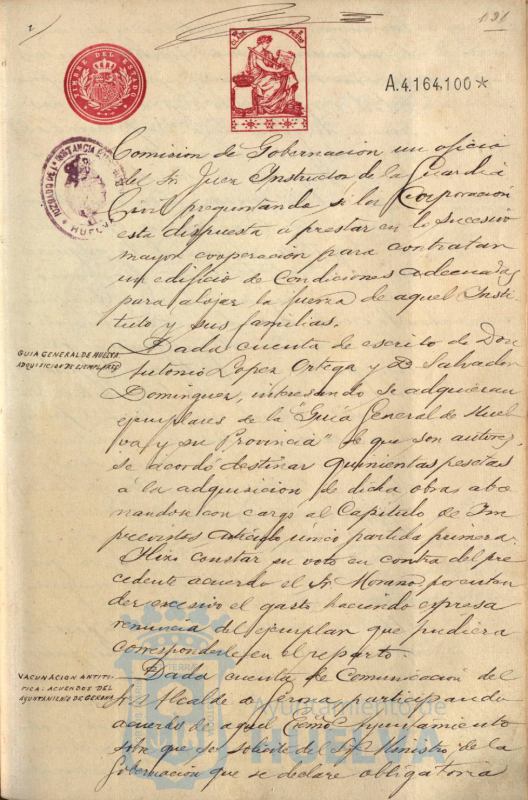 191
TIMBRE DEL ESTADO
A.4.164.100*
JUZGADO DE 1ª INSTANCIA E INSTRUCCION
HUELVA
Comision de Gobernacion un oficio
del Sr Juez Instructor de la Guardia
Civil preguntando si la Corporación
esta dispuesta a prestar en lo sucesivo
mayor cooperación para contratar
un edificio de Condiciones adecuadas
para alojar la fuerza de aquel Insti
tuto y sus familias.
GUIA GENERAL DE HUELVA
ADQUISICION DE EJEMPLARES
Dada cuenta de escrito de Don
Antonio Lopez Ortega y D. Salvador
Dominguez, interesando se adquieran
ejemplares de la "Guia General de Huel
va y su Provincia" de que son autores,
se acordó destinar quinientas pesetas
á la adquisicion de dicha obra abo
nandose con cargo al Capitulo de Im
previstos articulo único partida primera.
Hizo constar su voto en contra del pre
cedente acuerdo el Sr Morano por enten
der excesivo el gasto haciendo expresa
renuncia del ejemplar que pudiera
corresponderle en el reparto.
VACUNACION ANTITI-
FICA: ACUERDOS DEL
AYUNTAMIENTO DE GERONA
Dada cuenta de Comunicación del
Sr Alcalde de Gerona participando
acuerdo de aquel Excmo Ayuntamiento
sobre que se solicite del Sr Ministro de la
Gobernación que se declare obligatoria
Ayuntamiento de
HUELVA